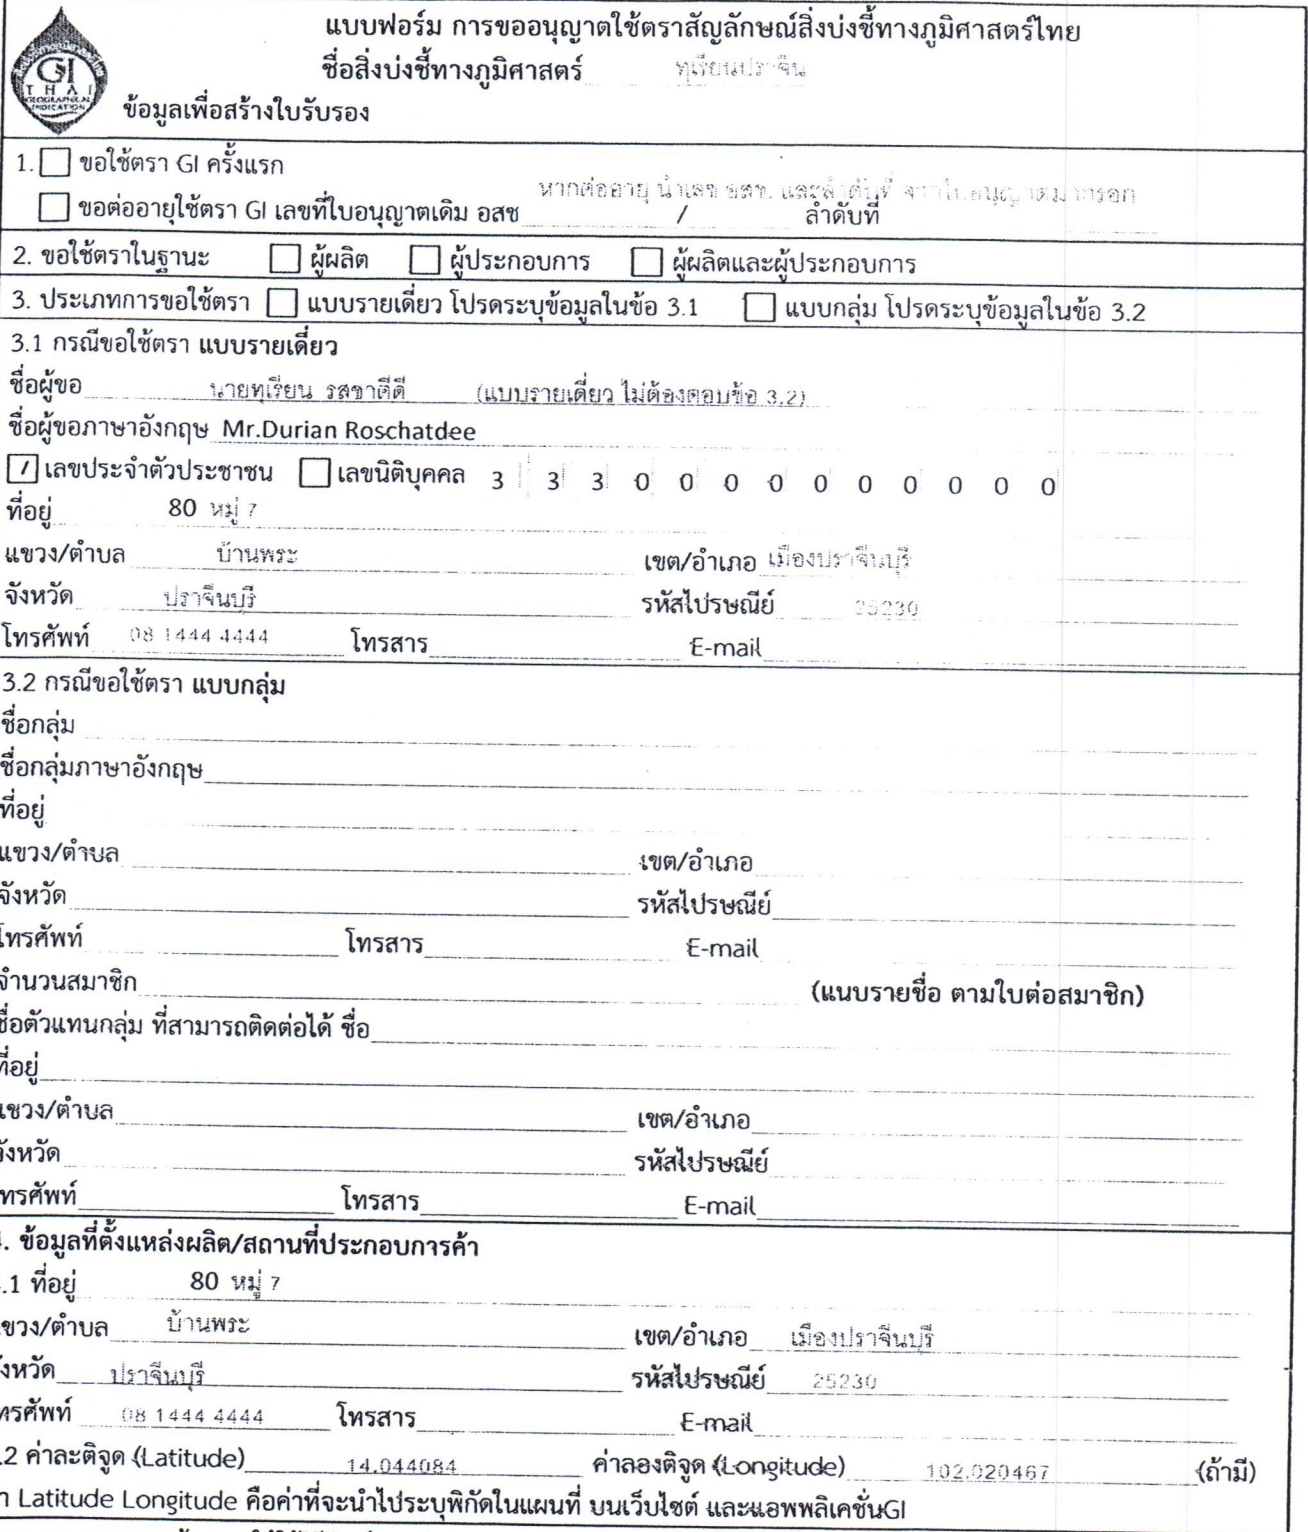 แบบฟอร์ม การขออนุญาตใช้ตราสัญลักษณ์สิ่งบ่งชี้ทางภูมิศาสตร์ไทย
GI
THAI
GEOGRAPHICAL
INDICATION
ชื่อสิ่งบ่งชี้ทางภูมิศาสตร์ ทุเรียนปราจีน
ข้อมูลเพื่อสร้างใบรับรอง
1. ขอใช้ตรา GI ครั้งแรก
หากต่ออายุ นำเลข อสช. และลำดับที่ จากใบอนุญาตมากรอก
ขอต่ออายุใช้ตรา GI เลขที่ใบอนุญาตเดิม อสช / ลำดับที่
2. ขอใช้ตราในฐานะ ผู้ผลิต ผู้ประกอบการ ผู้ผลิตและผู้ประกอบการ
3. ประเภทการขอใช้ตรา แบบรายเดี่ยว โปรดระบุข้อมูลในข้อ 3.1 แบบกลุ่ม โปรดระบุข้อมูลในข้อ 3.2
3.1 กรณีขอใช้ตรา แบบรายเดี่ยว
ชื่อผู้ขอ นายทุเรียน รสชาติดี (แบบรายเดี่ยว ไม่ต้องตอบข้อ 3.2)
ชื่อผู้ขอภาษาอังกฤษ Mr.Durian Roschatdee
/ เลขประจำตัวประชาชน เลขนิติบุคคล 3 3 3 0 0 0 0 0 0 0 0 0 0
ที่อยู่ 80 หมู่ 7
แขวง/ตำบล บ้านพระ เขต/อำเภอ เมืองปราจีนบุรี
จังหวัด ปราจีนบุรี รหัสไปรษณีย์ 25230
โทรศัพท์ 08 1444 4444 โทรสาร E-mail
3.2 กรณีขอใช้ตรา แบบกลุ่ม
ชื่อกลุ่ม
ชื่อกลุ่มภาษาอังกฤษ
ที่อยู่
แขวง/ตำบล เขต/อำเภอ
จังหวัด รหัสไปรษณีย์
โทรศัพท์ โทรสาร E-mail
จำนวนสมาชิก (แนบรายชื่อ ตามใบต่อสมาชิก)
ชื่อตัวแทนกลุ่ม ที่สามารถติดต่อได้ ชื่อ
ที่อยู่
แขวง/ตำบล เขต/อำเภอ
จังหวัด รหัสไปรษณีย์
ทรศัพท์ โทรสาร E-mail
. ข้อมูลที่ตั้งแหล่งผลิต/สถานที่ประกอบการค้า
.1 ที่อยู่ 80 หมู่ 7
ขวง/ตำบล บ้านพระ เขต/อำเภอ เมืองปราจีนบุรี
ังหวัด ปราจีนบุรี รหัสไปรษณีย์ 25230
ทรศัพท์ 08 1444 4444 โทรสาร E-mail
.2 ค่าละติจูด (Latitude) 14.044084 ค่าลองติจูด (Longitude) 102.020467 (ถ้ามี)
า Latitude Longitude คือค่าที่จะนำไประบุพิกัดในแผนที่ บนเว็บไซต์ และแอพพลิเคชั่นGI